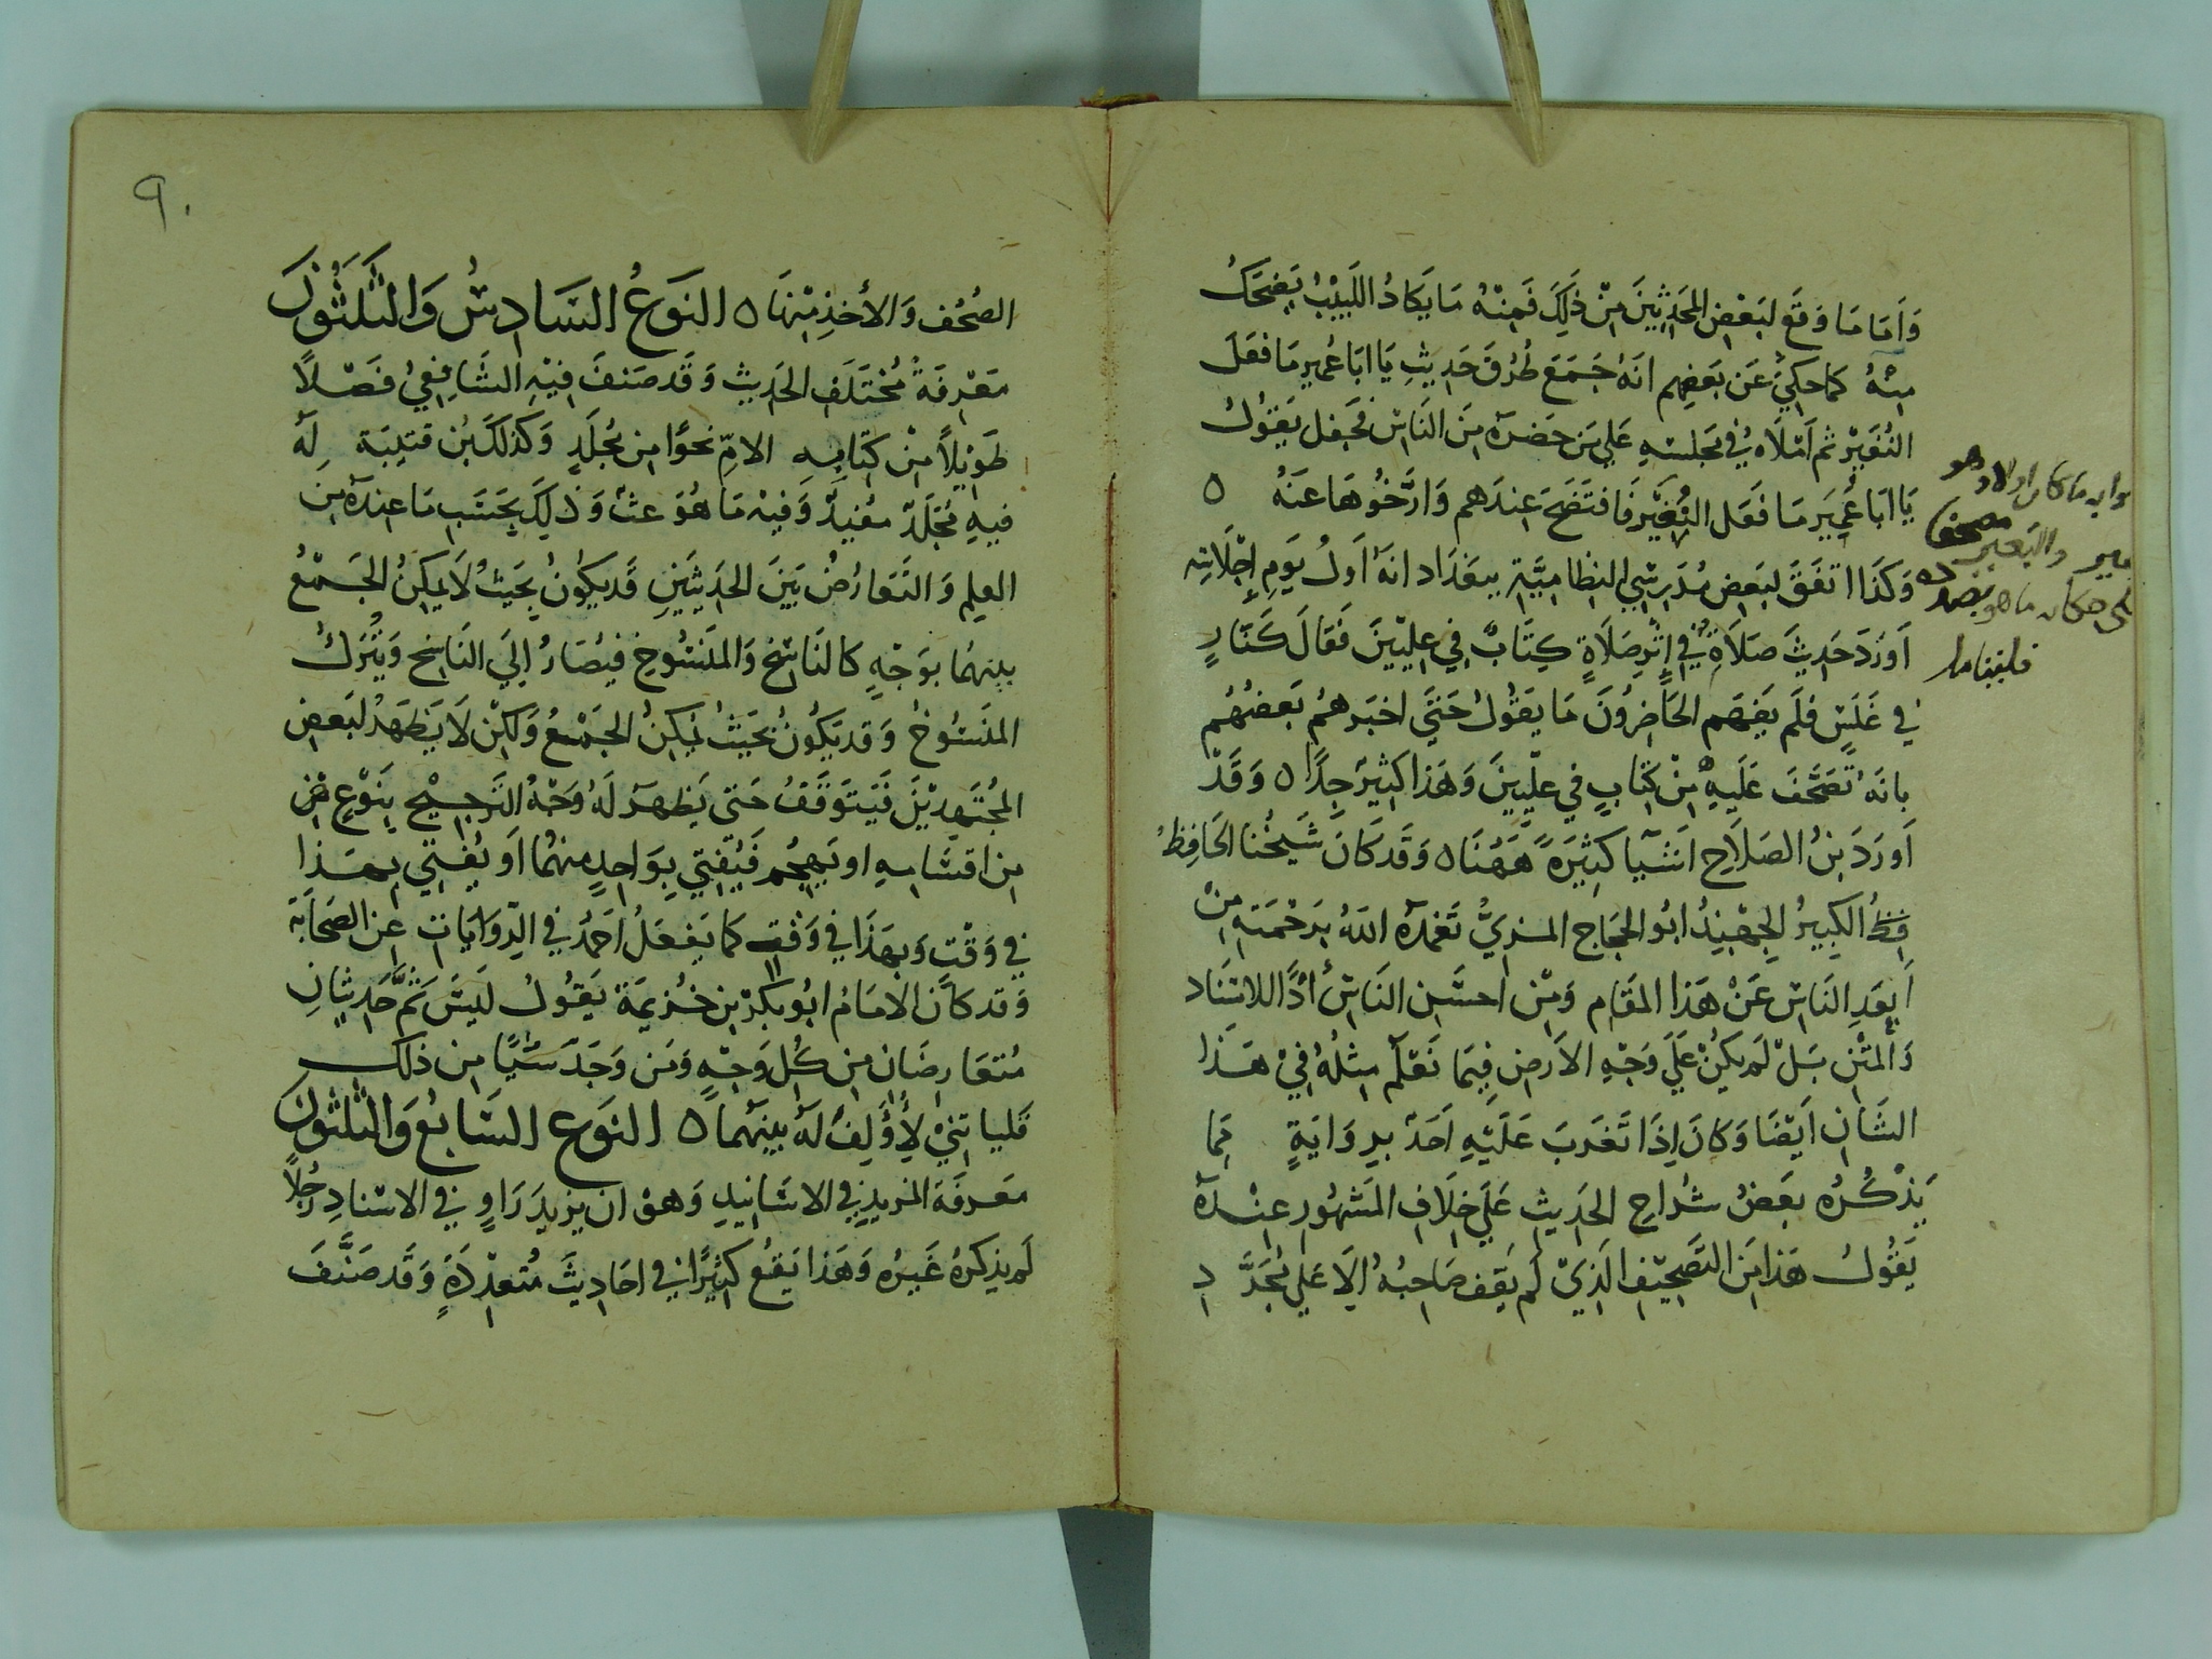 وَأَمَا مَا وَقَع لبَعْضِ المحَدِثِينَ مِنْ ذلِكَ فَمِنْهُ مَا يَكَادُ اللَبِيْبُ يَضحَكُ
مِنْهُ كما حكيَ عَن بَعَضِهم انَهُ جَمَعَ طُرُقَ حَدِيثِ يَا ابَا عُمير مَا فعَلَ
النُغَيْرْ ثم أمْلَاه فيْ مَجلسهِ عَلي مَن حَضرَه مِنَ النَاسْ فجَعَل يَقوُلُ
يَا ابَا عُمَيرَ مَا فَعَل البُعَيْرْ فَافتَضَحَ عِندَهم وَارَّخُوُهَا عَنهُ ه
وَكَذَا اتفَقَ لبَعَضِ مُدَرِسِي النظَامِيَّةِ ببَغدَاد انَهُ اَولُ يَومِ إجْلَاسِه
اَورَدَ حَدِيثَ صَلَاةٌ فِيْ إِثْرِ صَلَاةٍ كِتَابٌ فِي عِلِيّينَ فَقَالَ كَنَارٍ
في غَلَسٍ فلَم يَفهَم الحَاضِرُونَ مَا يقَوُلُ حَتيَ اخبَرهُم بَعضُهُم
بانَهُ تَصَحَّفَ عَلَيهِ مِنْ كِتَابٍ في عِلّيينَ وَهَذا كثِيرٌ جِدًا ه وَقَدْ
اَورَدَ بنُ الصَلَاحِ اشَيَا كثِيَرةً هَهُنَا ه وَقَد كَانَ شَيخُنا الحَافِظُ
الكبِيرُ الجِهبِذُ ابُو الحَجَاج المزيُّ تغَمدَه اللَهُ برَحْمَتهِ مِنْ
أبعَدِ النَاسْ عَنْ هَذا المقَام وَمِنْ احسَن النَاسْ أدًَا للاسْنَاد
وَالمَتْنِ بَلْ لَم يكُنْ عَلَي وَجْهِ الأرَضِ فِيمَا نَعْلَم مِثلُهُ فيْ هَذَا
الشَانِ أيَضَا وَكانَ إذَا تَغَربَ عَلَيْهِ أحَدٌ بروَايةٍ مِما
يَذْكُرُه بَعَضُ شرُاحِ الحَدِيثِ عَلَي خِلَافِ المشَهُورِ عِنْدَه
يَقُولُ هَذا مِنَ التَصَحِيْفِ الَذِيْ لَم يَقِف صَاحِبُهُ الِا عَلي مُجَرَّدِ
مَا كان اولا وهو
مصحف
والبعير
ما هو بصدده
فلبنا ما
٩٠
الصُحُف وَالأخذِ مِنْهَا ه النَوعُ السَادِسُ وَالثلَثُونَ
مَعْرِفَةُ مُختَلَفِ الحَدِيث وَقَد صَنفَ فِيْهِ الشَافِعِيُ فَصْلًا
طَوِيْلاً مِنْ كِتَابِهِ الامِّ نحوًا مِن مُجلَدٍ وَكَذَلكَ بْن قتَيبَة لَه
فيهِ مُجَلَدٌ مُفيدٌ وَفِيهْ مَا هُوَ غثٌ وَذلِكَ بحَسَبِ مَا عِندَه مِنَ
العِلِم وَالتَعَارُضُ بَيَن الحَدِيثَيَنِ قَد يكُونُ بحَيَثُ لَا يمكِنُ الجَمْعُ
بينهمَا بوَجْهٍ كالنَاسِخِ وَالمَنَسُوخِ فيُصَارُ إلَي النَاسِخ وَيُتْرَكُ
المنَسُوُخُ وَقد يَكُونُ بحَيثُ يُمكِنُ الجَمْعُ وَلَكنْ لَا يَظهَرُ لبَعضِ
المجُتَهِديْنَ فَيَتوَقَفُ حَتى يَظهرَ لَهُ وَجْهُ التَرجِيْحِ بِنَوْعٍ
مِن اقسَامِهِ او يَهجُم فَيُفتِي بِوَاحِدٍ منهُمَا أو يُفتِي بِهَذا
في وَقْتٍ وَبهَذَا في وَقْت كما يَفعَلُ احَمدُ في الرِوَايَات عَن الصَحَابَة
وَقد كاَن الامَامُ ابُو بَكرْ بن خُزيمَة يَقُولُ لَيسَ ثَمَّ حَدِيثَانِ
مُتعَارِضَانِ مِن كُل وَجْهٍ وَمَن وَجَدَ شَيًْا مِن ذلكَ
فَليَاتِنيْ لِأُؤَلِفَ لَه بينَهما ه النَوع السَابعُ وَالثلَثوُنَ
مَعَرفَة المزيدِ في الاسَانِيدِ وَهوَ ان يزِيدَ رَاوٍ في الاسْنادِ رَجُلًا
لَم يَذكرهُ غَيرُه وَهَذا يَقعُ كثِيرًا في احَادِيثَ مُتعدِدَةٍ وَقَد صَنَّفَ